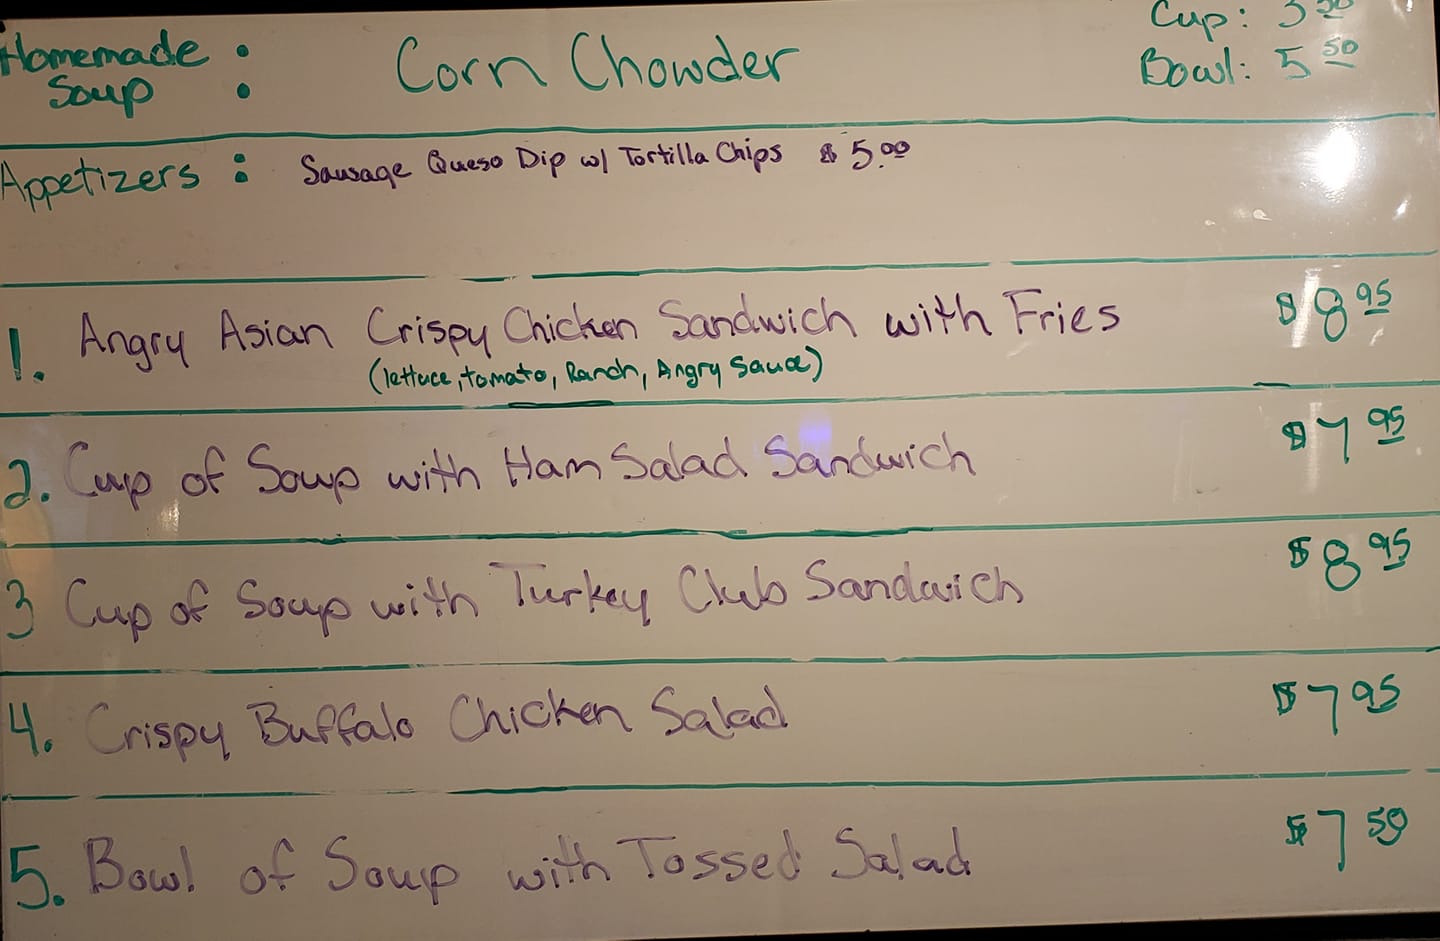 Homemade : Corn Chowder Cup:
Soup : Bowl: 5 50
Appetizers : Sausage Queso Dip w/ Tortilla Chips $ 5.00
1. Angry Asian Crispy Chicken Sandwich with Fries $ 8 95
(lettuce, tomato, Ranch, Angry Sauce)
2. Cup of Soup with Ham Salad Sandwich $ 7 95
3 Cup of Soup with Turkey Club Sandwich $ 8 95
4. Crispy Buffalo Chicken Salad $ 7 95
5. Bowl of Soup with Tossed Salad $ 7 50